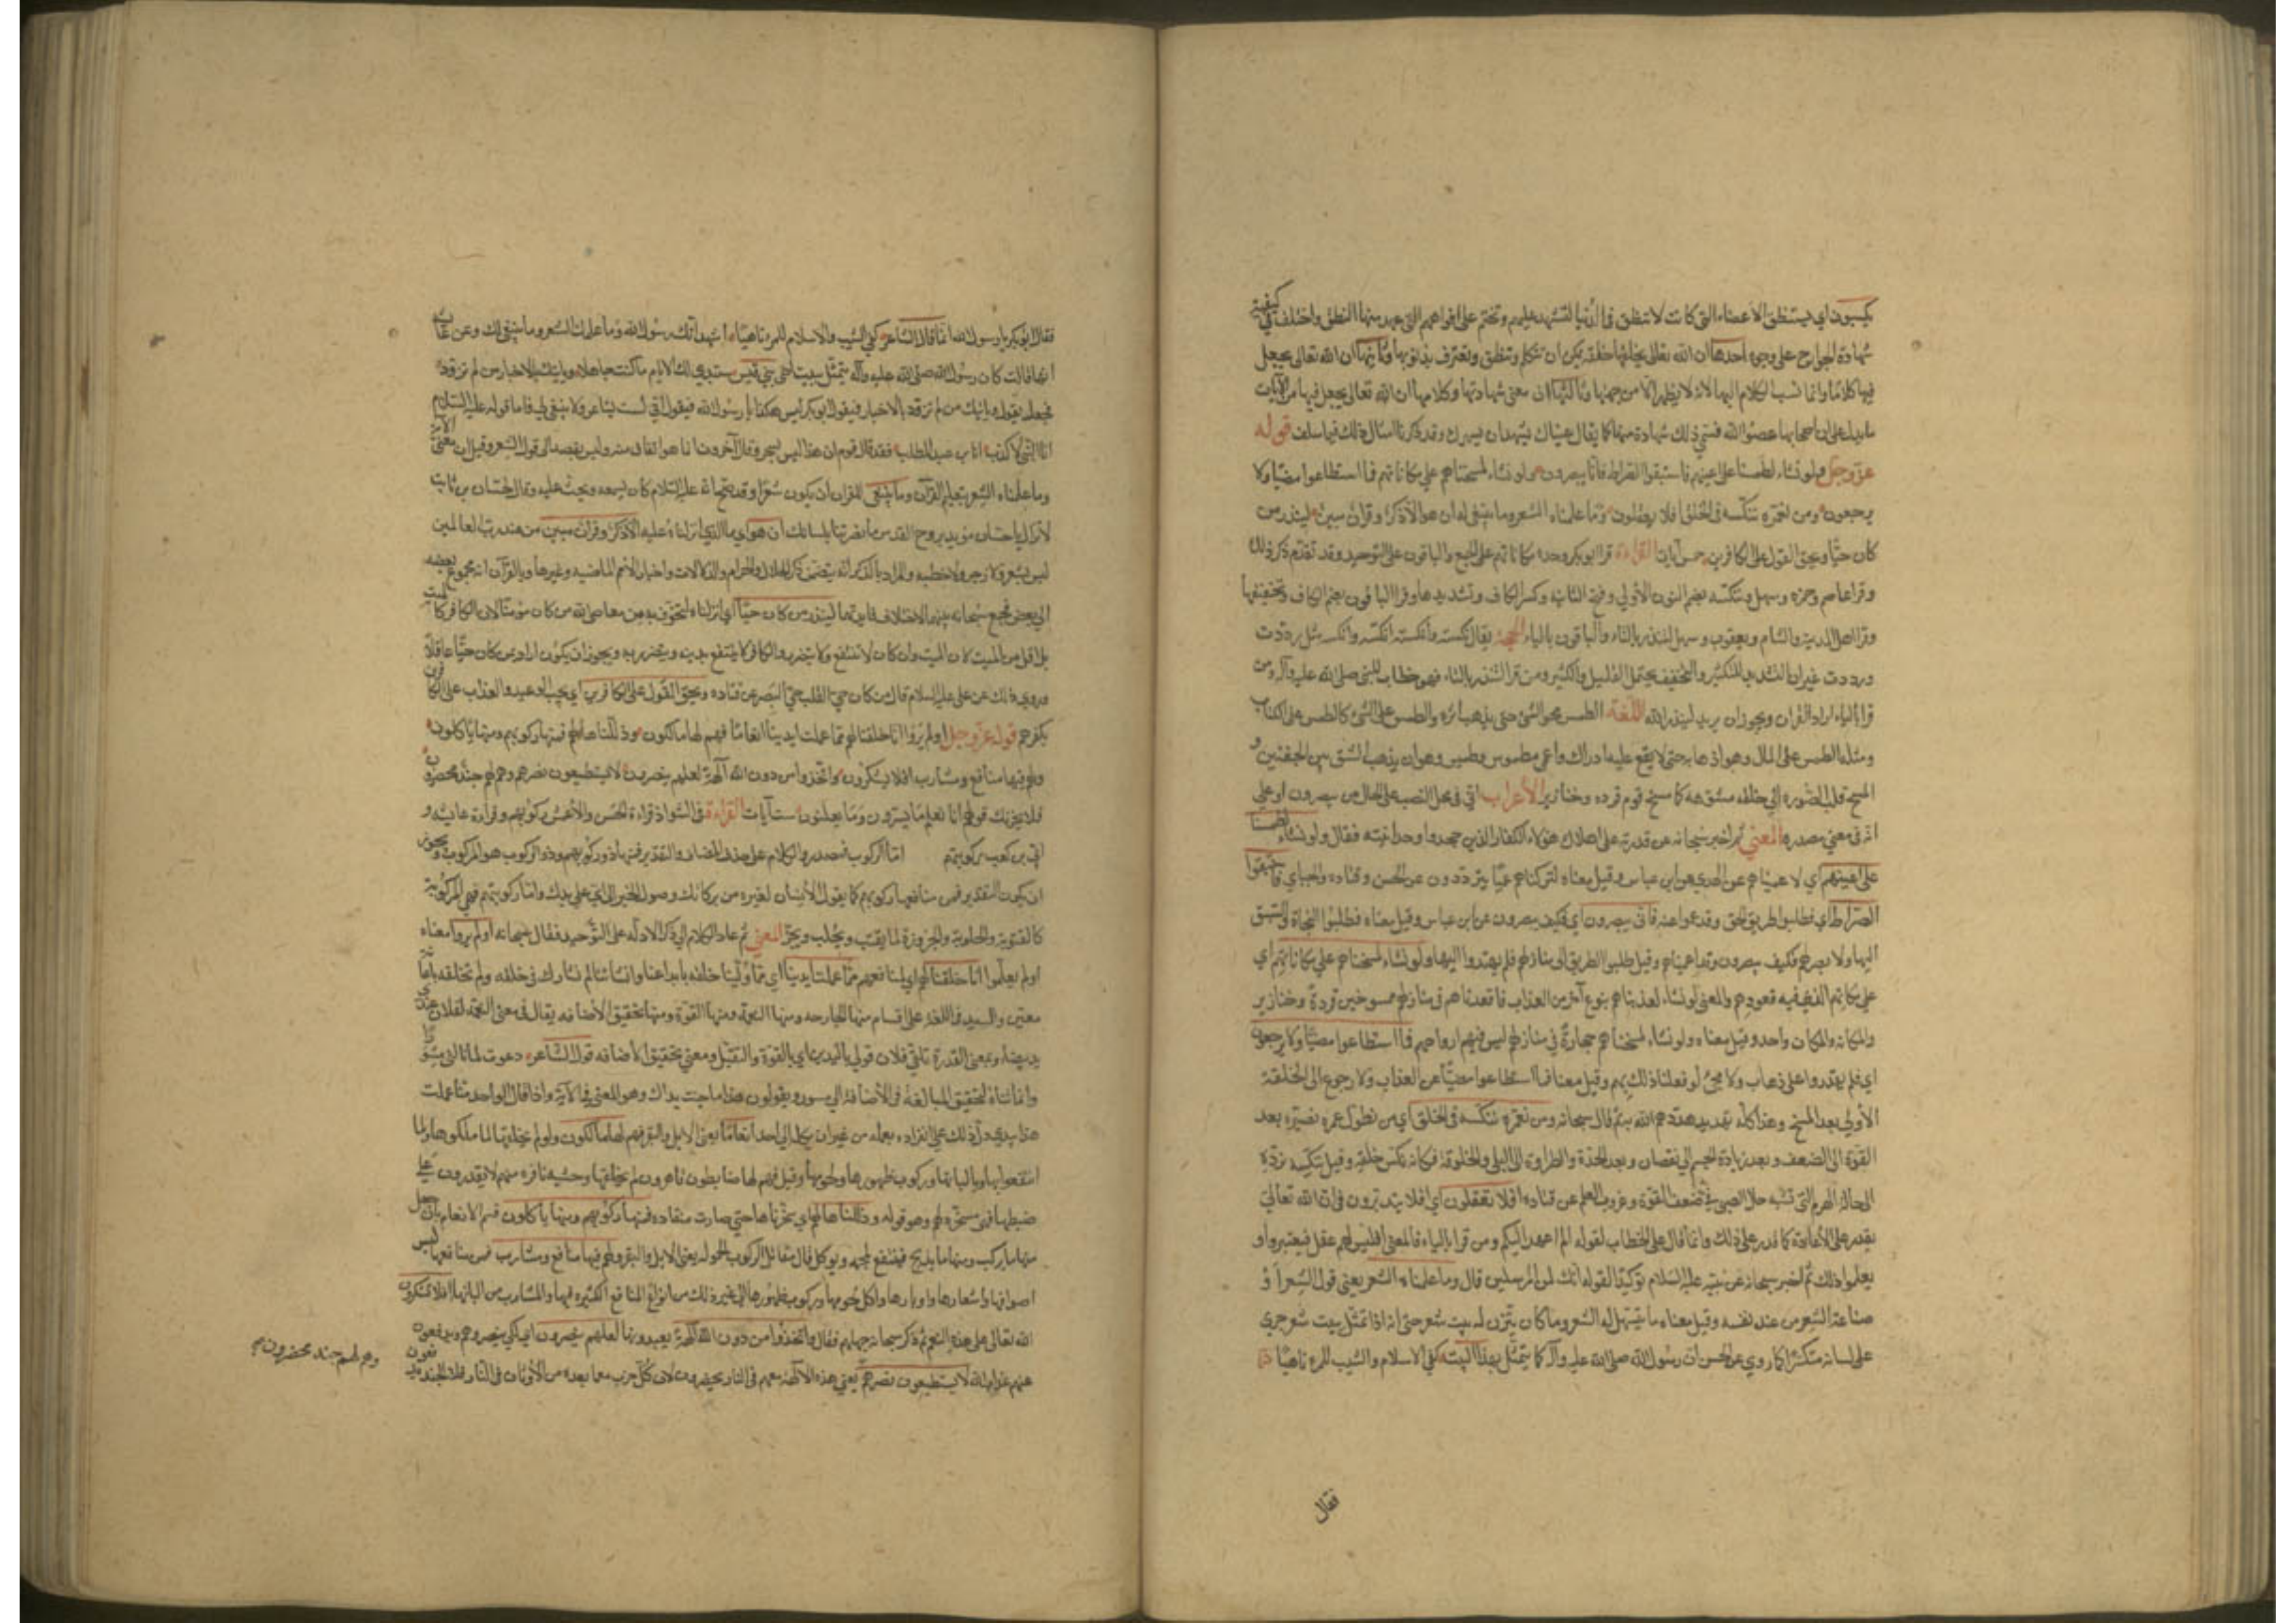 يكسبون اي يستنطق الاعضاء التي كانت لا تنطق في الدنيا لتشهد عليهم ونختم على افواههم التي عهد منها النطق واختلف في كيفية
شهادة الجوارح على وجوه احدها ان الله تعالى يخلقها خلقة يمكن ان تتكلم وتنطق وتعترف بذنوبها وثانيها ان الله تعالى يجعل
فيها كلاما وانما نسب الكلام اليها لانه لا يظهر الا من جهتها وثالثها ان معنى شهادتها وكلامها ان الله تعالى يجعل فيها من الآيات
ما يدل على ان اصحابها عصوا الله فسمي ذلك شهادة منها كما يقال عيناك تشهدان بسهرك وقد ذكرنا امثال ذلك فيما سلف قوله
عز وجل ولو نشاء لطمسنا على اعينهم فاستبقوا الصراط فأنى يبصرون ولو نشاء لمسخناهم على مكاناتهم فما استطاعوا مضيا ولا
يرجعون ومن نعمره ننكسه في الخلق افلا يعقلون وما علمناه الشعر وما ينبغي له ان هو الا ذكر وقرآن مبين لينذر من
كان حيا ويحق القول على الكافرين خمس آيات القراءة قرا ابو بكر وحده مكاناتهم على الجمع والباقون على التوحيد وقد تقدم ذكر ذلك
وقرا عاصم وحمزه وسهل ننكسه بضم النون الاولى وفتح الثانيه وكسر الكاف وتشديدها وقرا الباقون بضم الكاف وتخفيفها
وقرا اهل المدينه والشام ويعقوب وسهل لتنذر بالتاء والباقون بالياء الحجة يقال نكسته وانكسته انكسه وانكسه مثل رددت
ورددت غير ان التشديد للتكثير والتخفيف يحتمل القليل والكثير ومن قرا لتنذر بالتاء فهو خطاب للنبي صلى الله عليه وآله ومن
قرا بالياء اراد القران ويجوز ان يريد لينذر الله اللغة الطمس محو الشئ حتى يذهب اثره والطمس على الشئ كالطمس على الكتاب
ومثله الطمس على المال وهو اذهابه حتى لا يقع عليه ادراك واعمى مطموس وطميس وهو ان يذهب الشق بين الجفنين و
المسخ قلب الصوره الى خلقه مشوهه كما مسخ قوم قرده وخنازير الاعراب انى في محل النصب على الحال من يبصرون او على
انه في معنى مصدره المعنى ثم اخبر سبحانه عن قدرته على اهلاك هؤلاء الكفار الذين جحدوا وحدانيته فقال ولو نشاء لطمسنا
على اعينهم اي لاعميناهم عن الهدى عن ابن عباس وقيل معناه لتركناهم عميا يترددون عن الحسن وقتاده والجبائي فاستبقوا
الصراط اي فطلبوا طريق الحق وقد عموا عنه فأنى يبصرون اي فكيف يبصرون عن ابن عباس وقيل معناه فطلبوا النجاة والسبق
اليها ولا بصر لهم فكيف يبصرون وقد اعميناهم وقيل طلبوا الطريق الى منازلهم فلم يهتدوا اليها ولو نشاء لمسخناهم على مكاناتهم اي
على مكانهم الذي فيه قعودهم والمعنى لو نشاء لعذبناهم بنوع آخر من العذاب فاقعدناهم في منازلهم ممسوخين قردة وخنازير
والمكانه والمكان واحد وقيل معناه ولو نشاء لمسخناهم حجارة في منازلهم ليس فيهم ارواحهم فما استطاعوا مضيا ولا يرجعون
اي فلم يقدروا على ذهاب ولا مجئ لو فعلنا ذلك بهم وقيل معناه فما استطاعوا مضيا عن العذاب ولا رجوع الى الخلقة
الاولى بعد المسخ وهذا كله تهديد هددهم الله به ثم قال سبحانه ومن نعمره ننكسه في الخلق اي من نطول عمره نصيره بعد
القوة الى الضعف وبعد زيادة الجسم الى نقصان وبعد الجدة والطراوة الى البلى والخلوقة فكانه نكس خلقه وقيل ننكسه نرده
الى حال الهرم التي تشبه حال الصبي في ضعف القوة وعزوب العلم عن قتاده افلا تعقلون اي افلا يتدبرون في ان الله تعالى
يقدر على الاعادة كما قدر على ذلك وانما قال على الخطاب لقوله الم اعهد اليكم ومن قرا بالياء فالمعنى افليس لهم عقل فيعتبروا و
يعلموا ذلك ثم اخبر سبحانه عن نبيه عليه السلام توكيدا لقوله انك لمن المرسلين قال وما علمناه الشعر يعني قول الشعرا و
صناعة الشعر من عند نفسه وقيل معناه ما يتسهل له الشعر وما كان يتزن له بيت شعر حتى انه اذا تمثل بيت شعر جرى
على لسانه منكسرا كما روي عن الحسن ان رسول الله صلى الله عليه وآله كان يتمثل بهذا البيت كفى الاسلام والشيب للمرء ناهيا
فقال
فقال ابو بكر يا رسول الله انما قال الشاعر كفى الشيب والاسلام للمرء ناهيا اشهد انك رسول الله وما علمك الشعر وما ينبغي لك وعن عائشة
انها قالت كان رسول الله صلى الله عليه وآله يتمثل ببيت اخي بني قيس ستبدي لك الايام ما كنت جاهلا ويأتيك بالاخبار من لم تزود
فجعل يقول ويأتيك من لم تزود بالاخبار فيقول ابو بكر ليس هكذا يا رسول الله فيقول اني لست بشاعر ولا ينبغي لي فاما قوله عليه السلام
انا النبي لا كذب انا ابن عبد المطلب فقد قال قوم ان هذا ليس بشعر وقال آخرون انما هو اتفاق منه وليس بقصد الى قول الشعر وقيل ان معنى الآية
وما علمناه الشعر بتعليم القرآن وما ينبغي للقران ان يكون شعرا وقد صح انه عليه السلام كان يسمعه ويحث عليه وقال لحسان بن ثابت
لا تزال يا حسان مؤيدا بروح القدس ما نصرتنا بلسانك ان هو اي ما الذي انزلناه عليه الا ذكر وقران مبين من عند رب العالمين
ليس بشعر ولا رجز ولا خطبه والمراد بالذكر انه يتضمن ذكر الحلال والحرام والدلالات واخبار الامم الماضيه وغيرها وبالقرآن انه مجموع بعضه
الى بعض فجمع سبحانه بينهما لاختلاف فائدتهما لينذر من كان حيا اي انزلناه لتخوف به من معاصي الله من كان مؤمنا لان الكافر كالميت
بل اقل من الميت لان الميت وان كان لا ينتفع ولا يتضرر والكافر لا ينتفع بدينه ويتضرر به ويجوز ان يكون اراد بمن كان حيا عاقلا
وروي ذلك عن علي عليه السلام قال من كان حي القلب حي البصر عن قتاده ويحق القول على الكافرين اي يجب الوعيد والعذاب على الكافرين
بكفرهم قوله عز وجل اولم يروا انا خلقنا لهم مما عملت ايدينا انعاما فهم لها مالكون وذللناها لهم فمنها ركوبهم ومنها يأكلون
ولهم فيها منافع ومشارب افلا يشكرون واتخذوا من دون الله آلهة لعلهم ينصرون لا يستطيعون نصرهم وهم لهم جند محضرون
فلا يحزنك قولهم انا نعلم ما يسرون وما يعلنون ست آيات القراءة في الشواذ قراءة الحسن والاعمش ركوبهم وقراءة عائشه و
ابي بن كعب ركوبتهم اما الركوب فمصدر والكلام على حذف المضاف والتقدير فمنها ذو ركوبهم وذو الركوب هو المركوب ويجوز
ان يكون التقدير فمن منافعها ركوبهم كما يقول الانسان لغيره من بركاتك وصول الخير الي على يدك واما ركوبتهم فهي المركوبة
كالقتوبة والحلوبة والجزوزة لما يقتب ويحلب ويجز المعنى ثم عاد الكلام الى ذكر الادلة على التوحيد فقال سبحانه اولم يروا معناه
اولم يعلموا انا خلقنا لهم اي لمنافعهم مما عملت ايدينا اي مما ولينا خلقه بابداعنا وانشائنا لم نشارك في خلقه ولم نخلقه باعانة
معين واليد في اللغة على اقسام منها الجارحه ومنها النعمة ومنها القوة ومنها تحقيق الاضافه يقال في معنى النعمة لفلان عندي
يد بيضاء وبمعنى القدرة تلقى فلان قولي باليدين اي بالقوة والتقبل ومعنى تحقيق الاضافه قول الشاعر دعوت لما نابني مسورا
وانما ثناه لتحقيق المبالغة في الاضافة الى مسور ويقولون هذا ما جنت يداك وهو المعنى في الآية واذا قال الواحد منا عملت
هذا بيدي دل ذلك على انفراده بعمله من غير ان يكله الى احد انعاما يعني الابل والبقر فهم لها مالكون ولو لم نخلقها لما ملكوها ولما
انتفعوا بها وبالبانها وركوب ظهورها ولحومها وقيل فهم لها ضابطون قاهرون لم نخلقها وحشيه نافره منهم لا يقدرون على
ضبطها فهي مسخرة لهم وهو قوله وذللناها لهم اي سخرناها حتى صارت منقاده فمنها ركوبهم ومنها يأكلون قسم الانعام بان جعل
منها ما يركب ومنها ما يذبح فينتفع بلحمه ويؤكل قال مقاتل الركوب الحمولة يعني الابل والبقر ولهم فيها منافع ومشارب فمن منافعها لبس
اصوافها واشعارها واوبارها واكل لحومها وركوب ظهورها الى غير ذلك من انواع المنافع الكثيره فيها والمشارب من البانها افلا يشكرون
الله تعالى على هذه النعم ثم ذكر سبحانه جهلهم فقال واتخذوا من دون الله آلهة يعبدونها لعلهم ينصرون اي لكي ينصروهم ويدفعوا
عنهم عذاب الله لا يستطيعون نصرهم يعني هذه الآلهة معهم في النار محضرون لان كل حزب معه ما يعبده من الاوثان في النار فلا الجند يدفعون
وهم لهم جند محضرون